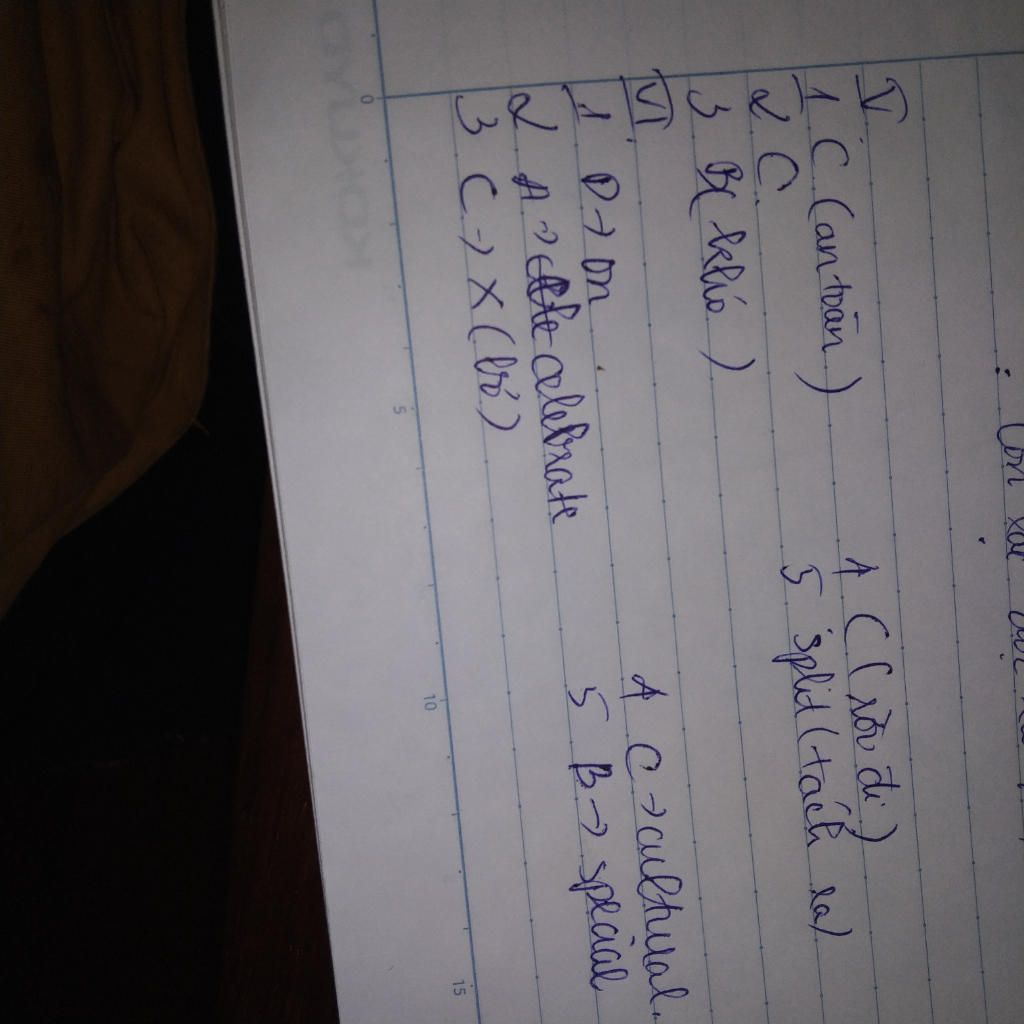 V
1 C (an toàn)
2 C
3 B( khó )
4 C (rời đi)
5 split (tách ra)
VI
1 D → on
2 A → celebrate
3 C → X (bỏ)
4 C → cultural.
5 B → special
0
5
10
15
KOKUYO